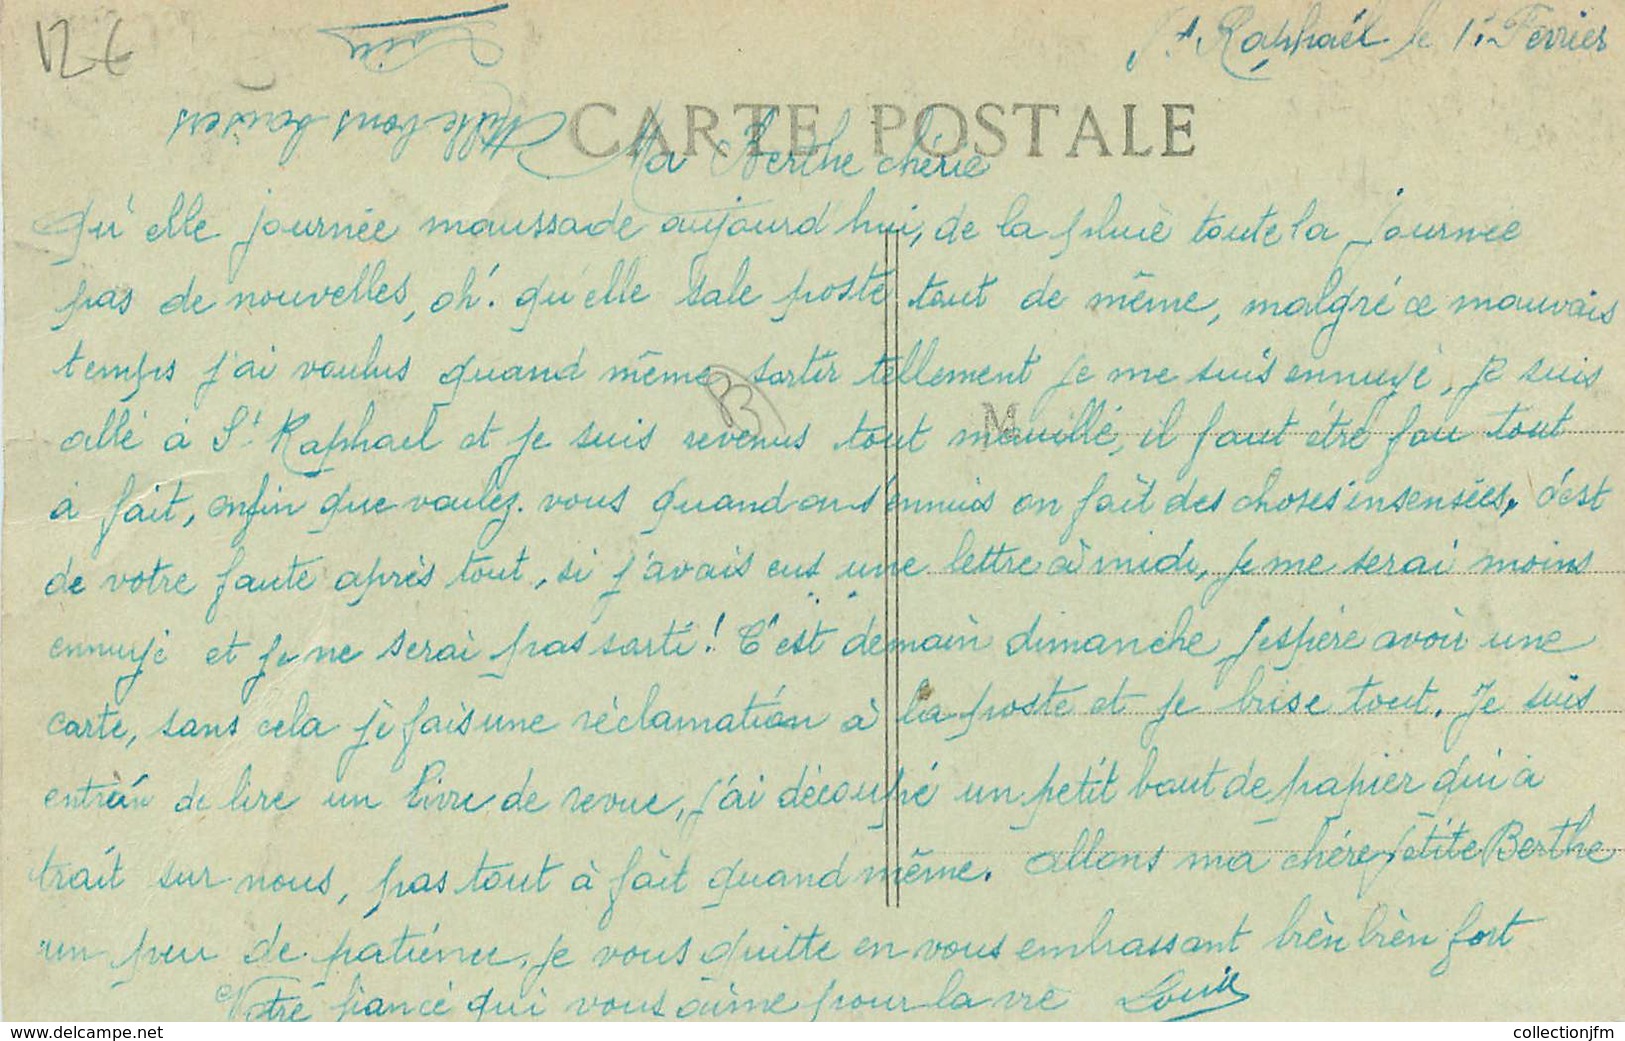 12 €
St Raphaël le 1er Fevrier
Mille bons baisers
Louis
CARTE POSTALE
Ma Berthe cherie
Qu'elle journée maussade aujourd'hui, de la pluie toute la journée
pas de nouvelles, oh! qu'elle sale poste tout de même, malgré ce mauvais
temps j'ai voulus quand même sortir tellement je me suis ennuyé, je suis
allé à St Raphael et je suis revenus tout mouillé, il faut être fou tout
à fait, enfin que voulez-vous quand on s'ennuis on fait des choses insensées, c'est
de votre faute après tout, si j'avais eus une lettre à midi, je me serai moins
ennuyé et je ne serai pas sorti! C'est demain dimanche j'espère avoir une
carte, sans cela je fais une réclamation à la poste et je brise tout. Je suis
entrain de lire un livre de revue, j'ai découpé un petit bout de papier qui à
trait sur nous, pas tout à fait quand même. allons ma chère petite Berthe
un peu de patience, je vous quitte en vous embrassant bien bien fort
Votre fiancé qui vous aime pour la vie Louis
M
www.delcampe.net
collectionjfm